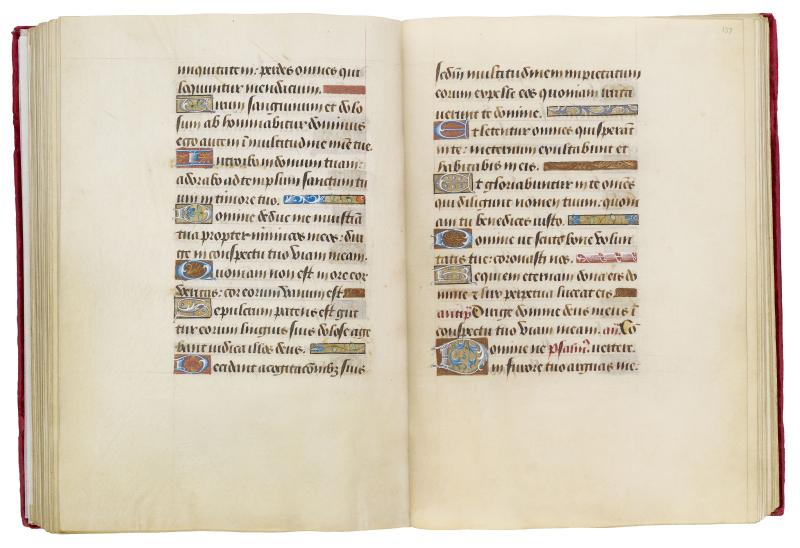 iniquitatem: perdes omnes qui
loquuntur mendatium.
Virum sanguinum et dolo
sum ab hominabitur dominus
ego autem ī multitudine mīe tue.
Introibo in domum tuam:
adorabo ad templum sanctum tu
um in timore tuo.
Domine deduc me in iustitiā
tua propter inimicos meos: diri
ge in conspectu tuo viam meam.
Quoniam non est in ore eor
veritas: cor eorum vanum est
Sepulcrum patens est gut
tur eorum linguis suis dolose age
bant iudica illos deus.
Decidant a cogitacōnibꝫ suis
137
scđm multitudinem impietatum
eorum expelle eos quoniam irrita
verunt te domine.
Et letentur omnes qui sperant
in te: in eternum exultabunt et
habitabis in eis.
Et gloriabuntur in te omnes
qui diligunt nomen tuum: quoni
am tu benedices iusto.
Domine ut scuto bone volun
tatis tue: coronasti nos.
Requiem eternam dona eis do
mine ⁊ lux perpetua luceat eis
antiph̄ Dirige domine deus meus ī
conspectu tuo viam meam. añ. Cō
Domine ne psalm̄. vertere.
in furore tuo arguas me: